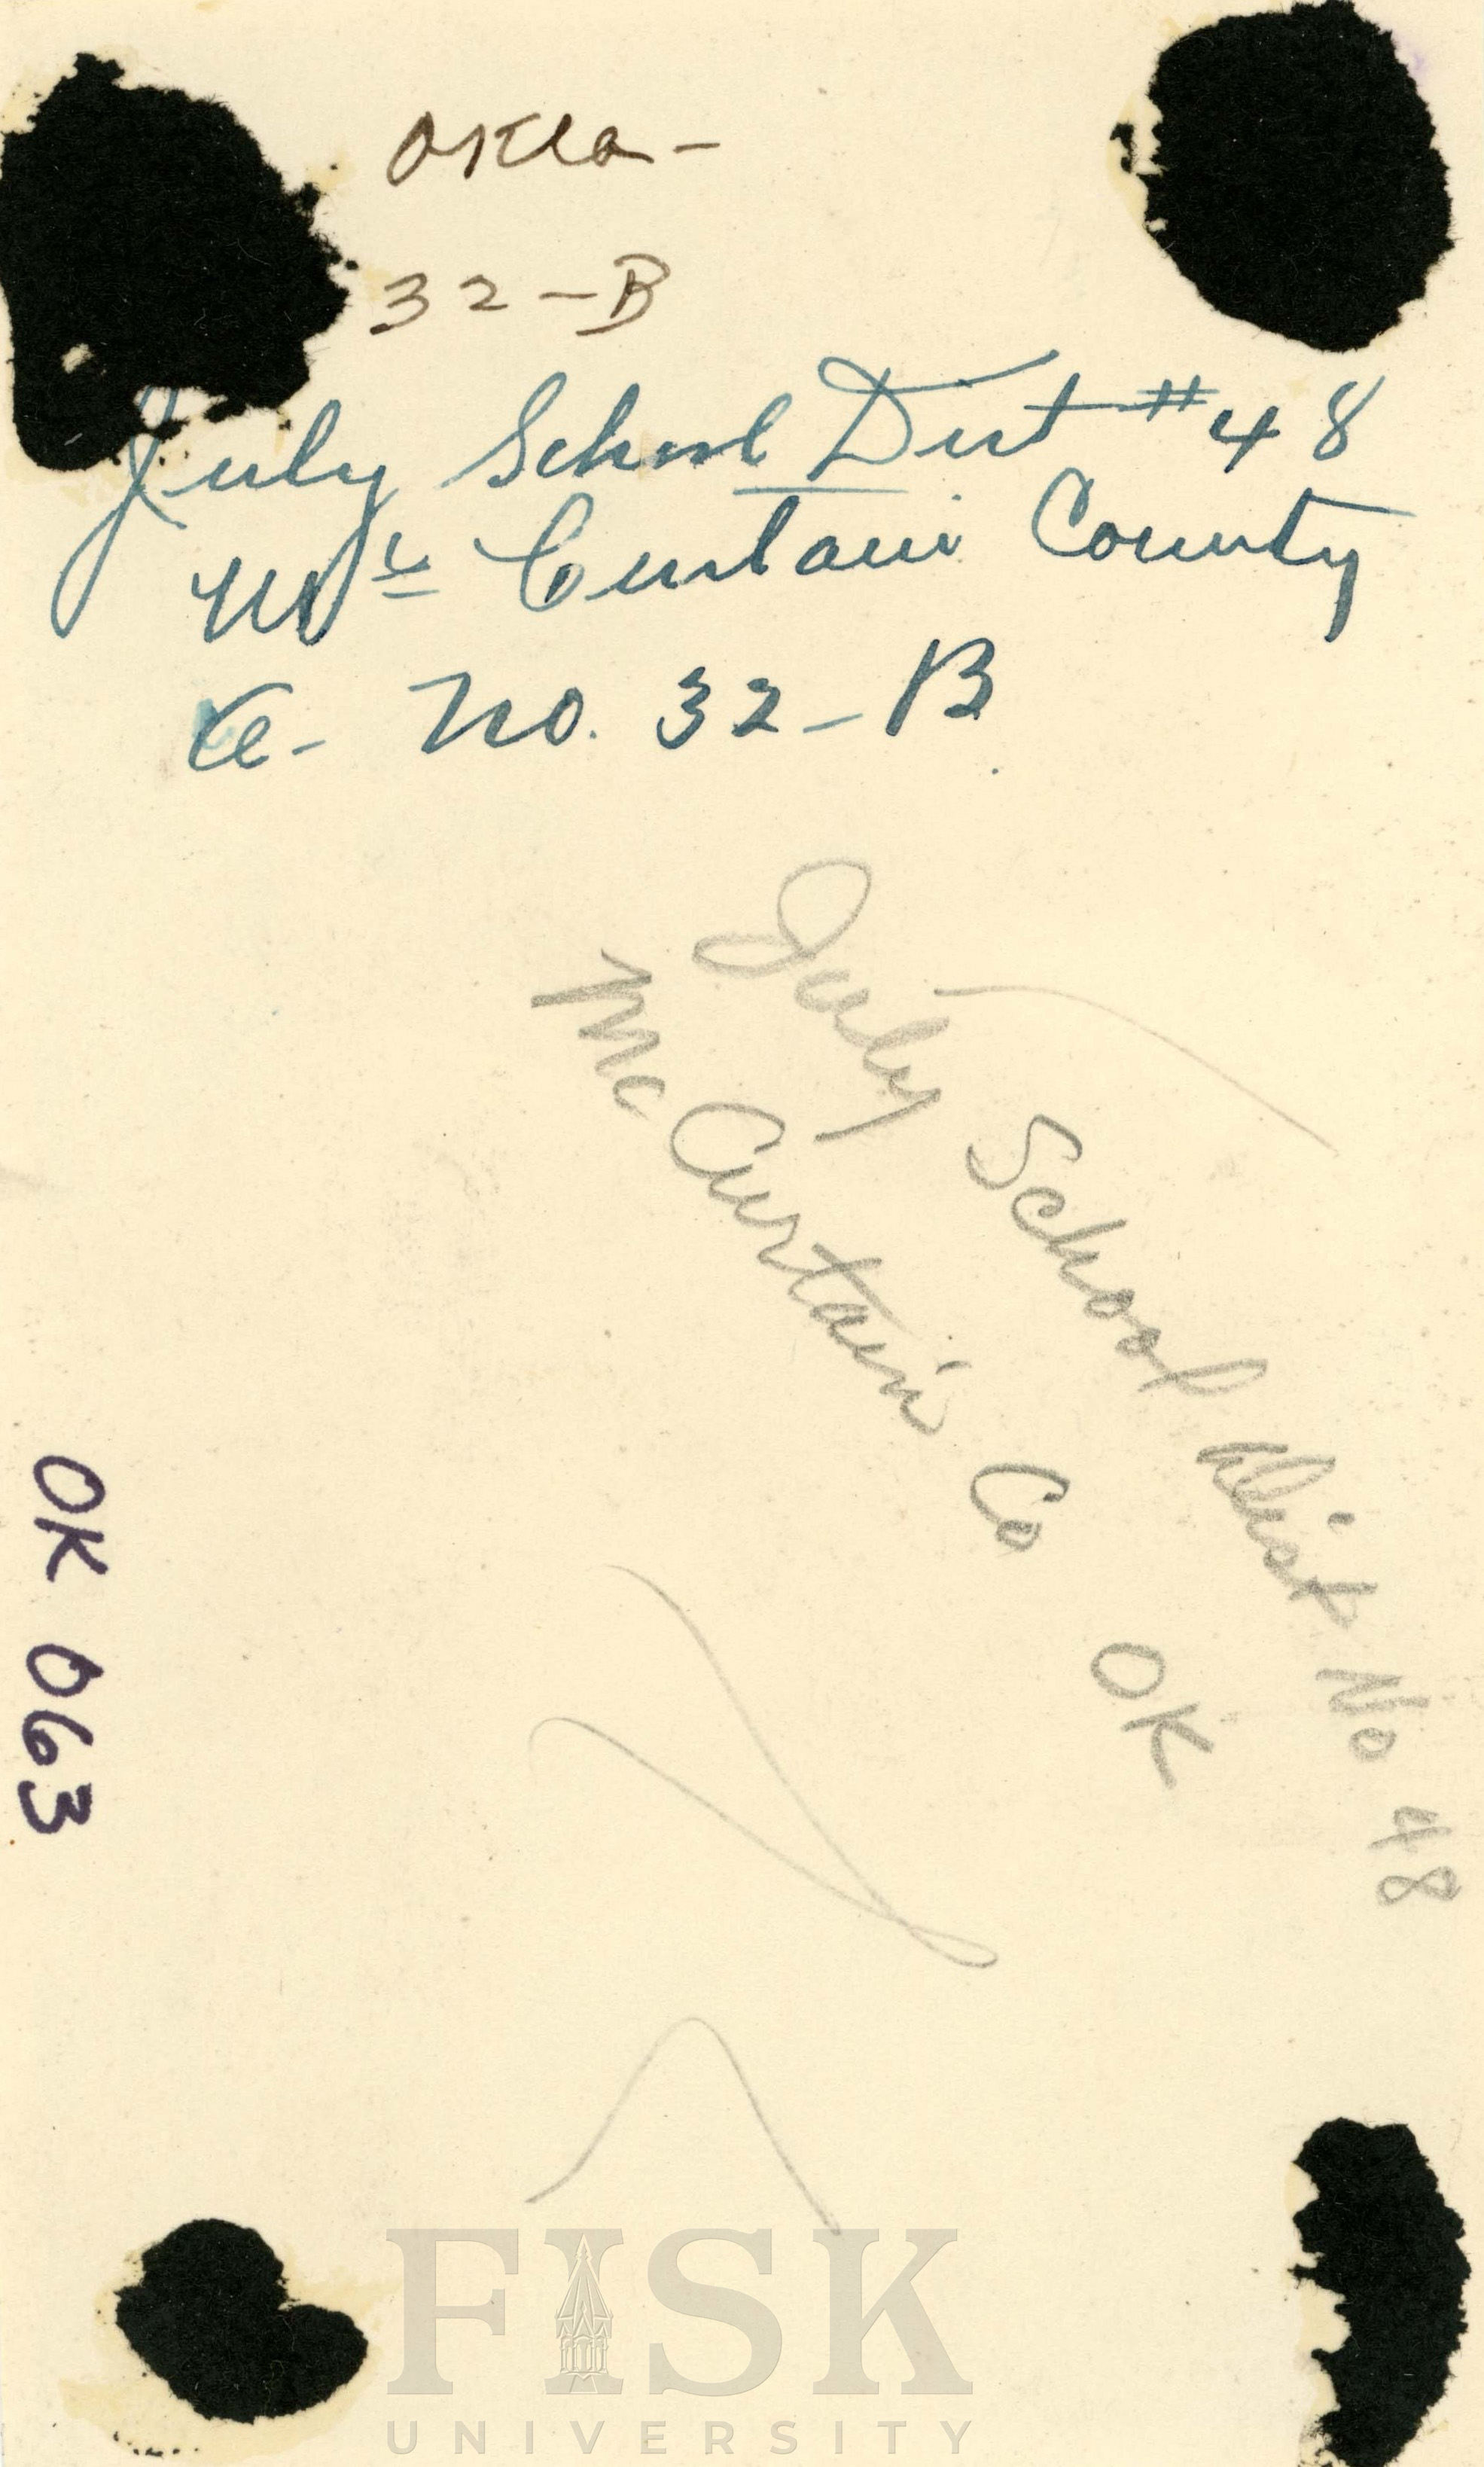 Okla-
32-B
July School Dist #48
Mc Curtain County
No. 32-B
July School Dist No 48
Mc Curtain Co OK
OK 063
FISK
UNIVERSITY